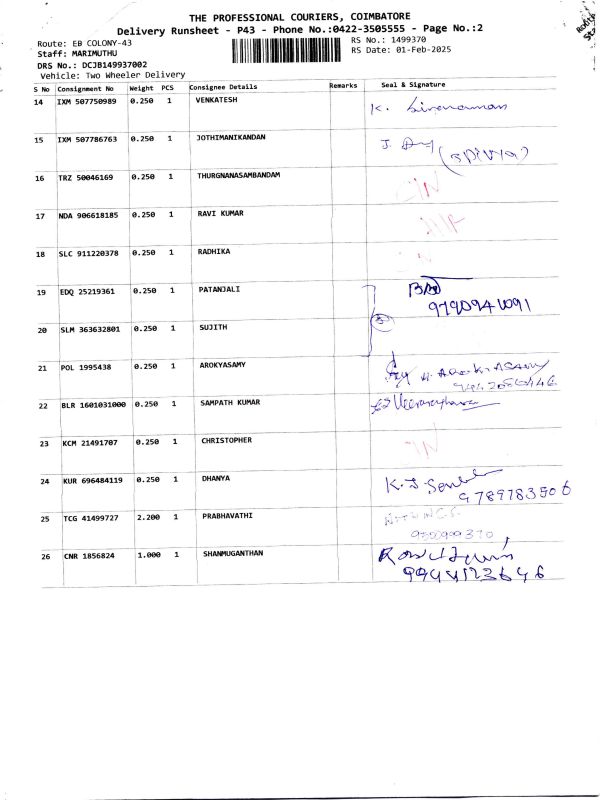 THE PROFESSIONAL COURIERS, COIMBATORE
Delivery Runsheet - P43 - Phone No.:0422-3505555 - Page No.:2
Route: EB COLONY-43
RS No.: 1499370
Staff: MARIMUTHU
RS Date: 01-Feb-2025
DRS No.: DCJB149937002
Vehicle: Two Wheeler Delivery
S No Consignment No Weight PCS Consignee Details Remarks Seal & Signature
14 IXM 507750989 0.250 1 VENKATESH K.
15 IXM 507786763 0.250 1 JOTHIMANIKANDAN J.
16 TRZ 50046169 0.250 1 THURGNANASAMBANDAM
17 NDA 906618185 0.250 1 RAVI KUMAR
18 SLC 911220378 0.250 1 RADHIKA
19 EDQ 25219361 0.250 1 PATANJALI
20 SLM 363632801 0.250 1 SUJITH
21 POL 1995438 0.250 1 AROKYASAMY
22 BLR 1601031000 0.250 1 SAMPATH KUMAR
23 KCM 21491707 0.250 1 CHRISTOPHER
24 KUR 696484119 0.250 1 DHANYA
9789783506
25 TCG 41499727 2.200 1 PRABHAVATHI
26 CNR 1856824 1.000 1 SHANMUGANTHAN
9944123646